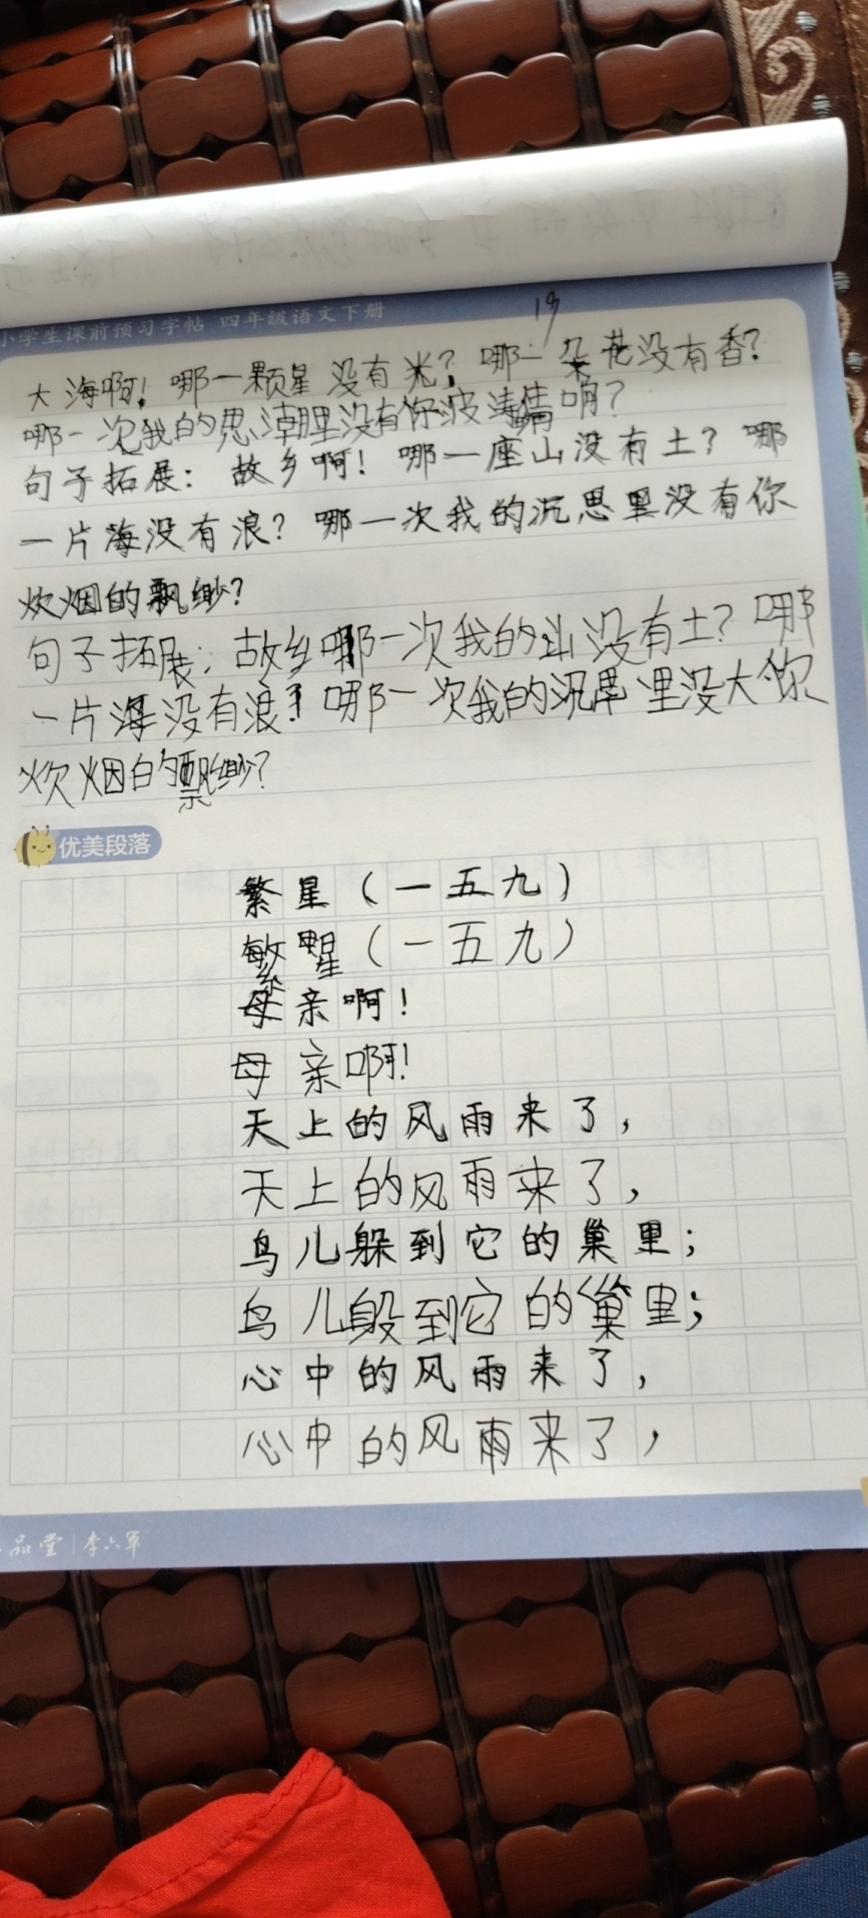 小学生课前预习字帖 四年级语文下册
19
大海啊！哪一颗星没有光？哪一朵花没有香？
哪一次我的思潮里没有你波涛清响？
句子拓展：故乡啊！哪一座山没有土？哪
一片海没有浪？哪一次我的沉思里没有你
炊烟的飘缈？
句子拓展：故乡哪一次我的山没有土？哪
一片海没有浪？哪一次我的沉思里没大你
炊烟的飘缈？
优美段落
繁星（一五九）
繁星（一五九）
母亲啊！
母亲啊！
天上的风雨来了，
天上的风雨来了，
鸟儿躲到它的巢里；
鸟儿躲到它的巢里；
心中的风雨来了，
心中的风雨来了，
品堂|李六军